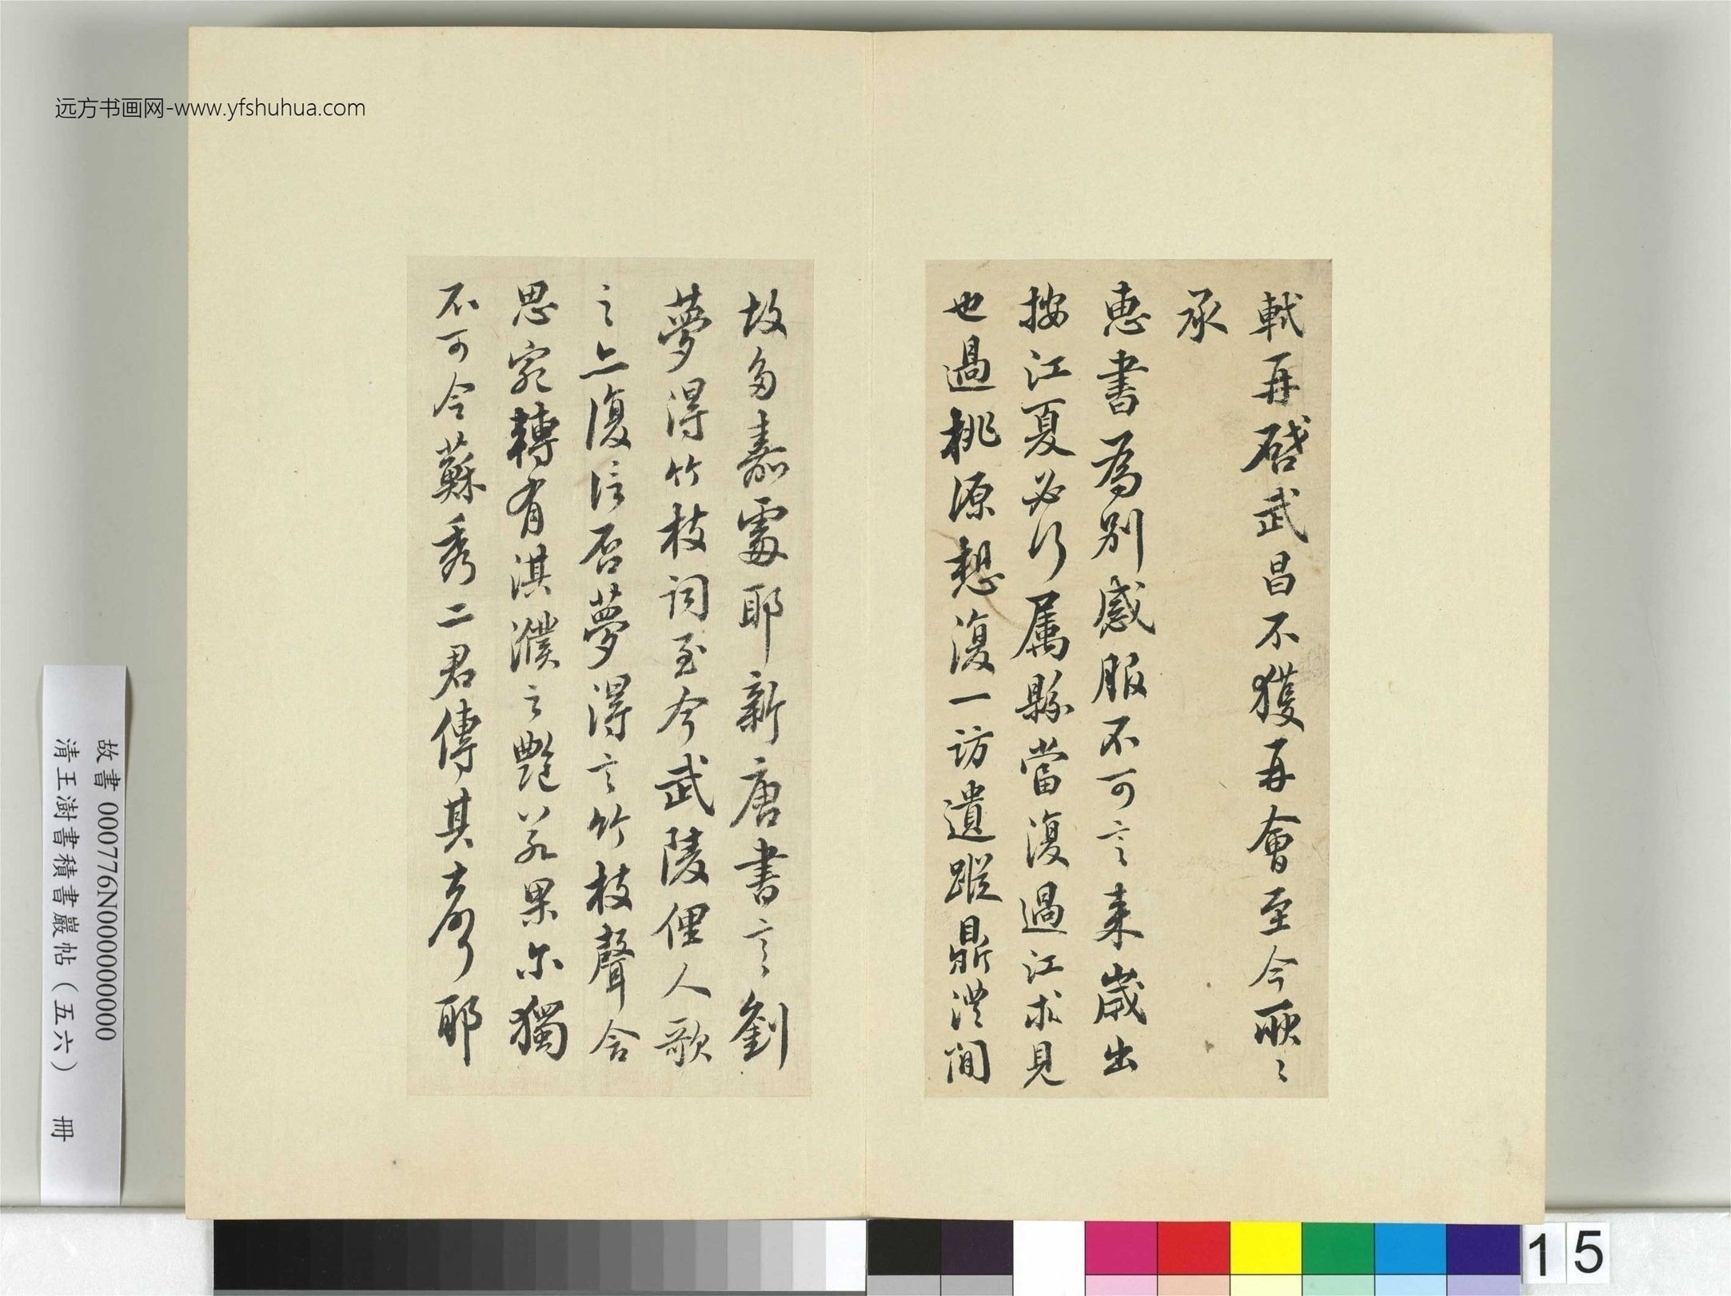 远方书画网-www.yfshuhua.com
軾再啓武昌不獲再會至今耿〻
承
惠書為別感服不可言來歲出
按江夏必行屬縣當復過江求見
也過桃源想復一訪遺蹤鼎澧間
故多嘉處耶新唐書言劉
夢得竹枝詞至今武陵俚人歌
之亦復信否夢得言竹枝聲含
思宛轉有淇濮之艷若果尔獨
不可令蘇秀二君傳其聲耶
故書 000776N000000000
清王澍書積書巖帖（五六） 冊
15